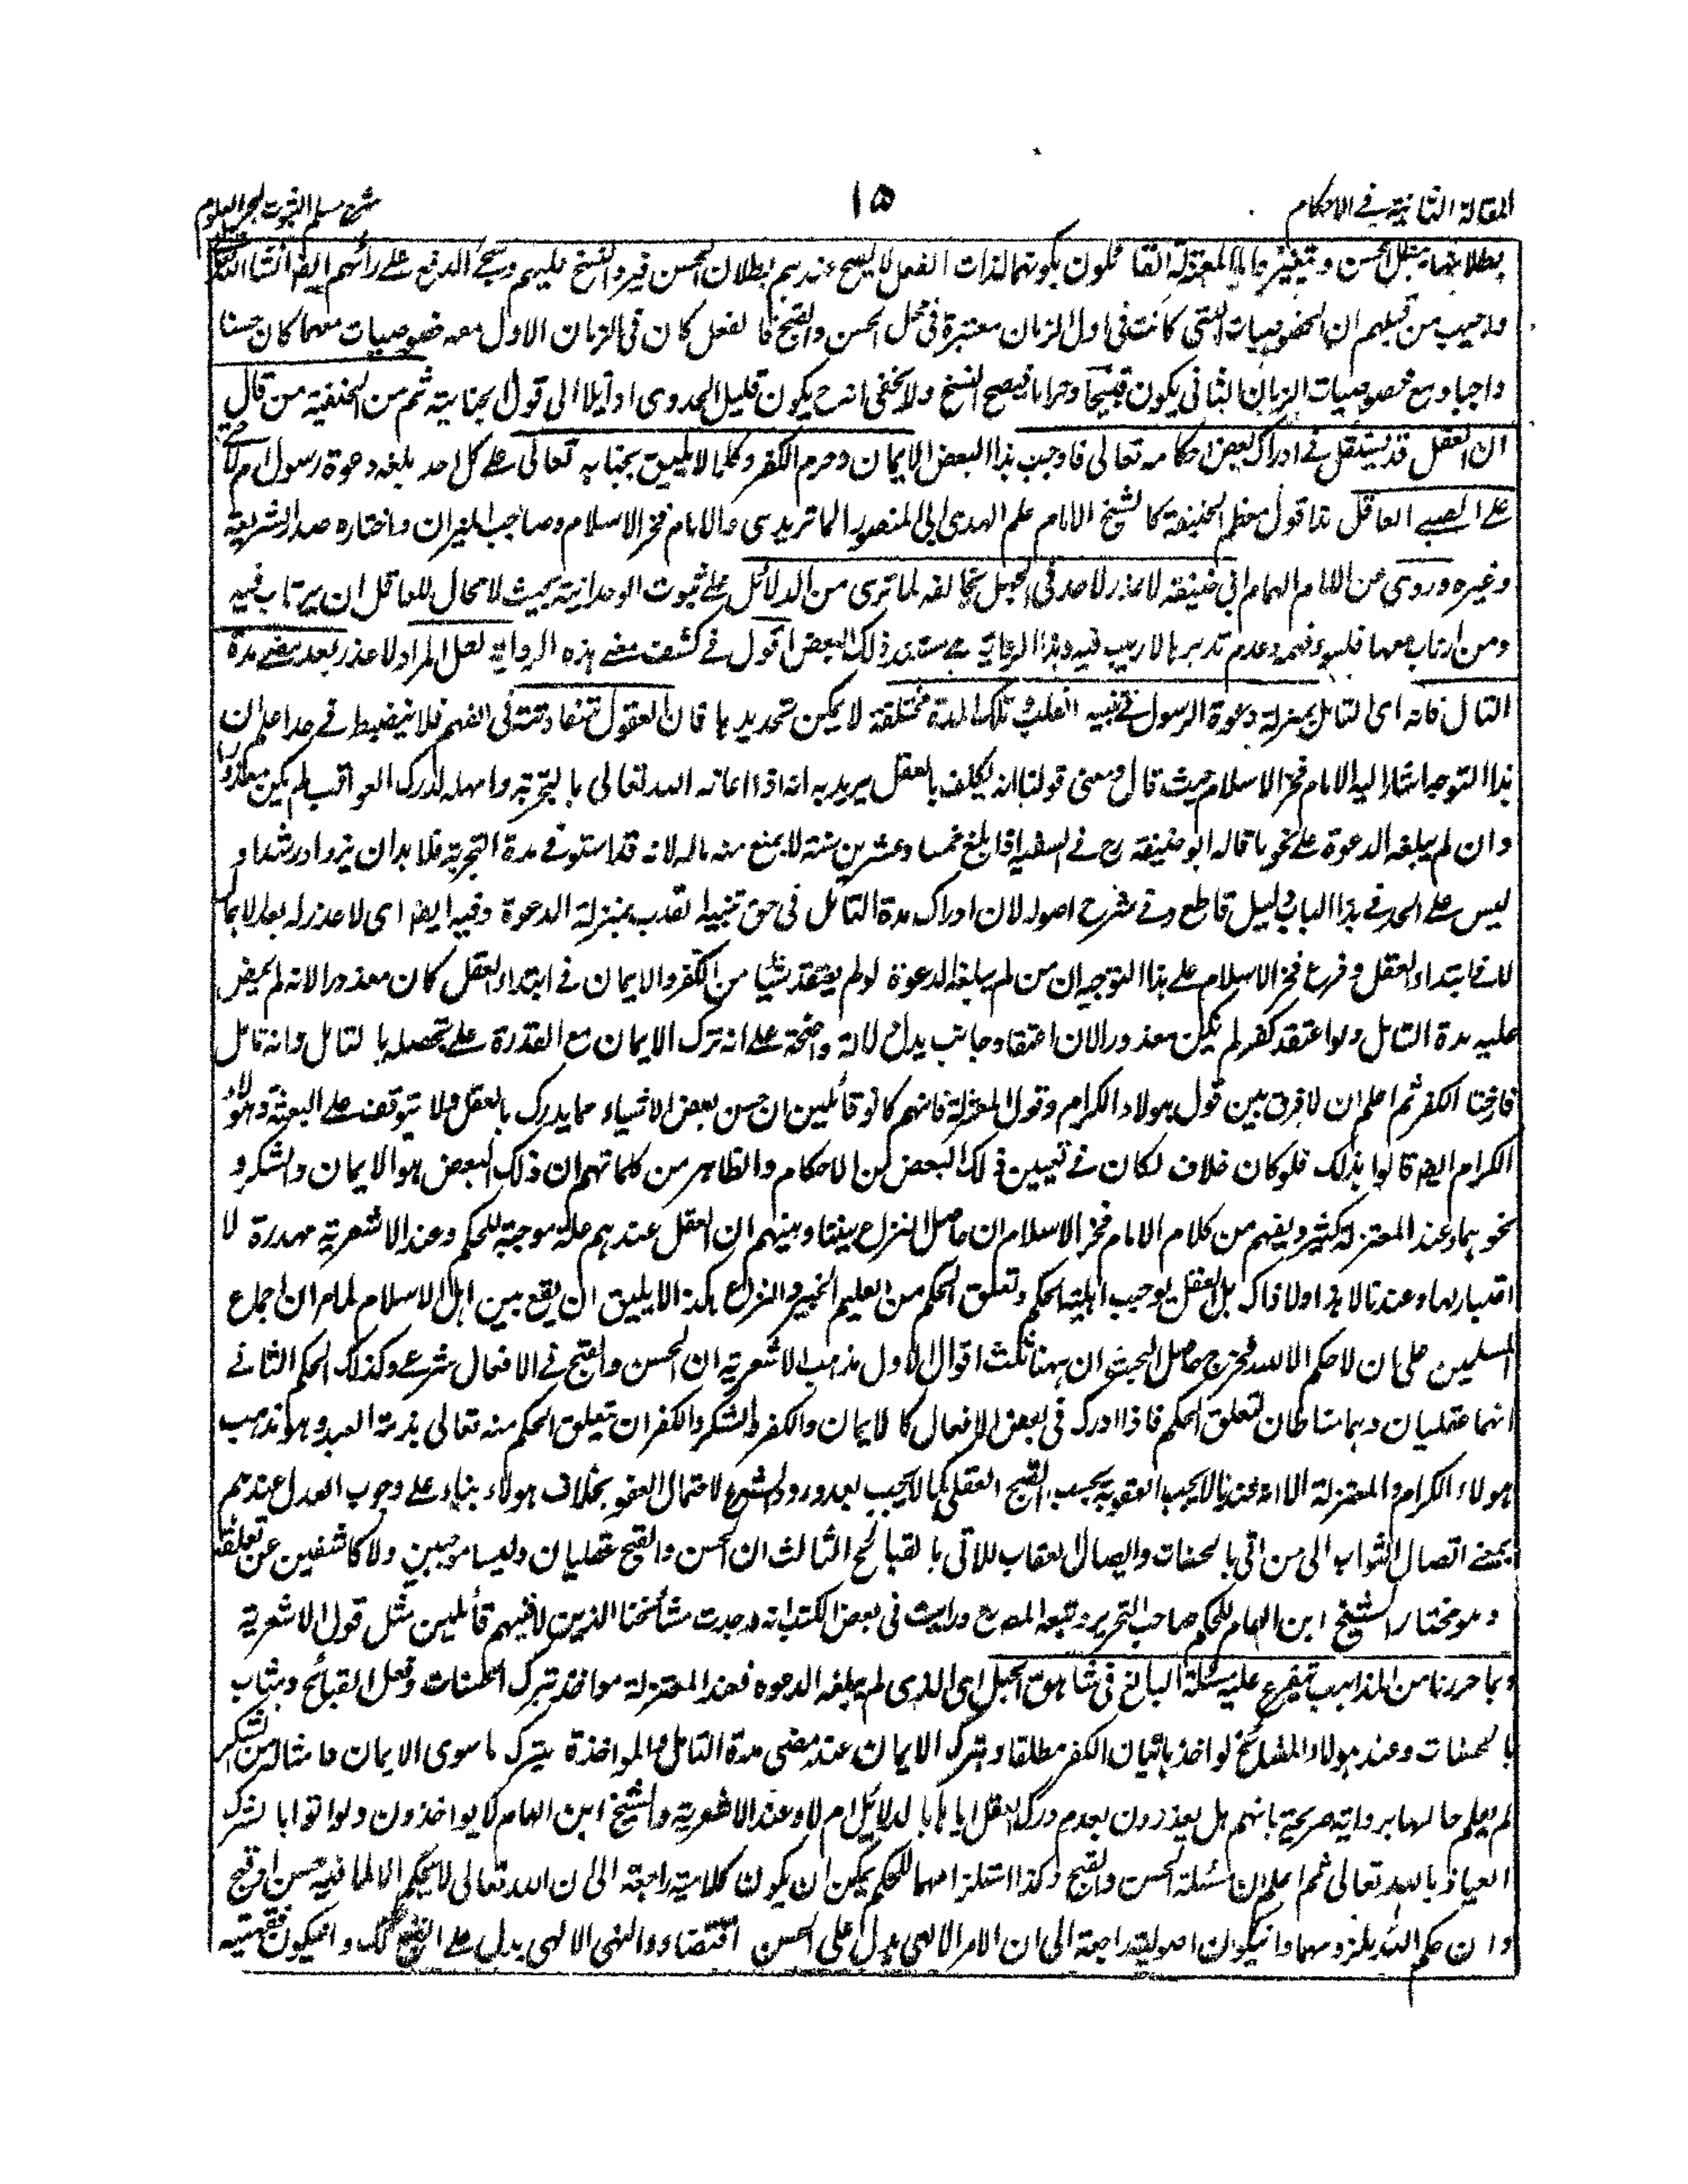 المقالة الثانية في الاحكام
١٥
شرح مسلم الثبوت لبحر العلوم
بطلانها يبطل الحسن و يتغير واما المعتزلة القائلون بكونهما لذات الفعل لا يصح عندهم بطلان الحسن فيرد النسخ عليهم وسيجئ الدفع على رأيهم ايضا انشاء الله
واجيب من قبلهم ان الخصوصيات التي كانت في اول الزمان معتبرة في محل الحسن والقبح فالفعل كان في الزمان الاول معه خصوصيات معها كان حسنا
واجبا ومع خصوصيات الزمان الثاني يكون قبيحا وحراما فيصح النسخ ولا يخفى انه ح يكون قليل الجدوى او آيلا الى قول الجبائية ثم من الحنفية من قال
ان العقل قد يستقل في ادراك بعض احكامه تعالى فاوجب هذا البعض الايمان وحرم الكفر وكلما لا يليق بجنابه تعالى على كل احد بلغه دعوة رسول ام لا حتى
على الصبي العاقل هذا قول معظم الحنفية كالشيخ الامام علم الهدى ابي المنصور الماتريدي والامام فخر الاسلام وصاحب الميزان واختاره صدر الشريعة
وغيره وروى عن الامام الهمام ابي حنيفة لا عذر لاحد في الجهل بخالقه لما ترى من الدلائل على ثبوت الوحدانية بحيث لا مجال للعاقل ان يرتاب فيه
ومن ارتاب معها فلسوء فهمه وعدم تدبره لا ريب فيه وهذا الرواية هي مستند ذلك البعض اقول في كشف معنى هذه الرواية لعل المراد لا عذر بعد مضي مدة
التامل فانه اى التامل بمنزلة دعوة الرسول في تنبيه القلب وتلك المدة مختلفة لا يمكن تحديدها فان العقول متفاوتة في الفهم فلا ينضبط في حد اعلم ان
هذا التوجيه اشار اليه الامام فخر الاسلام حيث قال ومعنى قولنا انه يكلف بالعقل يريد به انه اذا اعانه الله تعالى بالتجربة وامهله لدرك العواقب لم يكن معذورا
وان لم يبلغه الدعوة على نحو ما قاله ابو حنيفة رح في السفيه اذا بلغ خمسا وعشرين سنة لا يمنع منه ماله لانه قد استوفى مدة التجربة فلا بد ان يزداد رشدا و
ليس على الحد في هذا الباب دليل قاطع وفي شرح اصوله لان ادراك مدة التامل في حق تنبيه القلب بمنزلة الدعوة وفيه ايضا اى لا عذر له بعد الامهال
لا في ابتداء العقل وفرع فخر الاسلام على هذا التوجيه ان من لم يبلغه الدعوة لو لم يعتقد شيئا من الكفر والايمان في ابتداء العقل كان معذورا لانه لم يمض
عليه مدة التامل ولو اعتقد كفرا لم يكن معذورا لان اعتقاد جانب يدل دلالة واضحة على انه ترك الايمان مع القدرة على تحصيله بالتامل وانه تامل
فاختار الكفر ثم اعلم ان لا فرق بين قول هولاء الكرام وقول المعتزلة فانهم كانوا قائلين ان حسن بعض الاشياء مما يدرك بالعقل ولا يتوقف على البعثة وهولاء
الكرام ايضا قالوا بذلك فلو كان خلاف لكان في تعيين ذلك البعض من الاحكام والظاهر من كلماتهم ان ذلك البعض هو الايمان والشكر و
نحوهما وعند المعتزلة كثير ويفهم من كلام الامام فخر الاسلام ان حاصل النزاع بيننا وبينهم ان العقل عندهم علة موجبة للحكم وعند الاشعرية مهدرة لا
اعتبار لها وعندنا لا هذا ولا ذاك بل العقل يوجب اهلية الحكم وتعلق الحكم من العليم الخبير والنزاع هكذا لا يليق ان يقع بين اهل الاسلام لما مر ان اجماع
المسلمين على ان لا حكم الا لله فخرج حاصل البحث ان ههنا ثلث اقوال الاول مذهب الاشعرية ان الحسن والقبح في الافعال شرعي وكذلك الحكم الثاني
انهما عقليان وهما مناطان لتعلق الحكم فاذا ادرك في بعض الافعال كالايمان والكفر والشكر والكفران تعلق الحكم منه تعالى بذمة العبد وهو مذهب
هولاء الكرام والمعتزلة الا انه عندنا لا يجب العقوبة بحسب القبح العقلي كما لا يجب بعد ورود الشرع لاحتمال العفو بخلاف هولاء بناء على وجوب العدل عندهم
بمعنى اتصال الثواب الى من اتى بالحسنات وايصال العقاب للاتى بالقبائح الثالث ان الحسن والقبح عقليان وليسا موجبين ولا كاشفين عن تعلقه
وهو مختار الشيخ ابن الهمام للحكم صاحب التحرير وتبعه المصرح ورأيت في بعض الكتب انه وجدت مشائخنا الذين لاقيتهم قائلين مثل قول الاشعرية
وبما حررنا من المذاهب يتفرع عليه مسئلة البالغ في شاهق الجبل اى الذي لم يبلغه الدعوه فعند المعتزلة مواخذ بترك الحسنات وفعل القبائح ويثاب
بالحسنات وعند هولاء المشائخ يواخذ باتيان الكفر مطلقا وبترك الايمان عند مضى مدة التامل واما المواخذة بترك ما سوى الايمان وامثاله من الشكر
لم يعلم حالها برواية صريحة بانهم هل يعذرون بعدم درك العقل اياها بالدلائل ام لا وعند الاشعرية والشيخ ابن الهمام لا يواخذون ولو اتوا بالشرك
العياذ بالله تعالى ثم اعلم ان مسئلة الحسن والقبح وكذا استلزامهما للحكم يمكن ان يكون كلامية راجعة الى ان الله تعالى لا يحكم الا لما فيه حسن او قبح
وان حكم الله يلزمهما وان يكون اصولية راجعة الى ان الامر الالهي يدل على الحسن اقتضاء والنهي الالهي يدل على القبح كذلك وان يكون فقهية